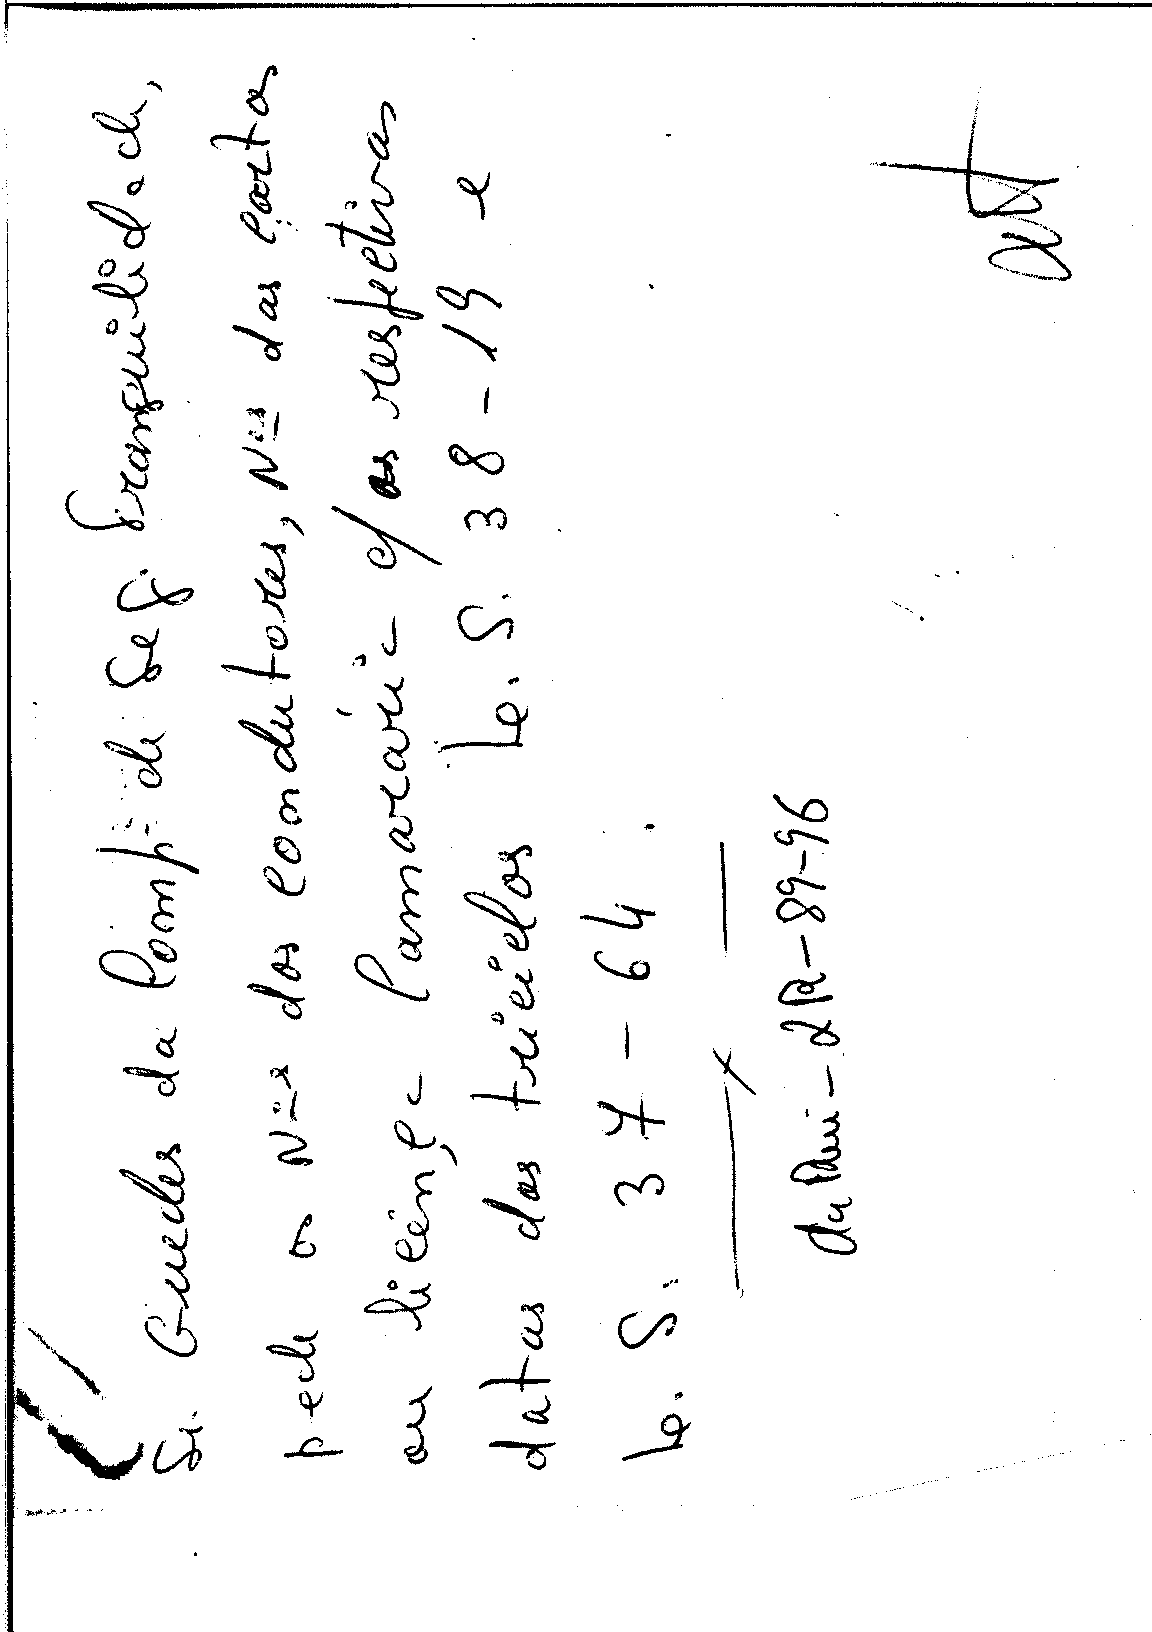 Sr. Guedes da Comp.ª de Seg. Tranquilidade,
pede os Nºs dos Condutores, Nºs das Cartas
ou licença Camarária c/ as respectivas
datas dos triciclos L.S. 38-19 e
L.S. 37-64.
- 2R-89-96